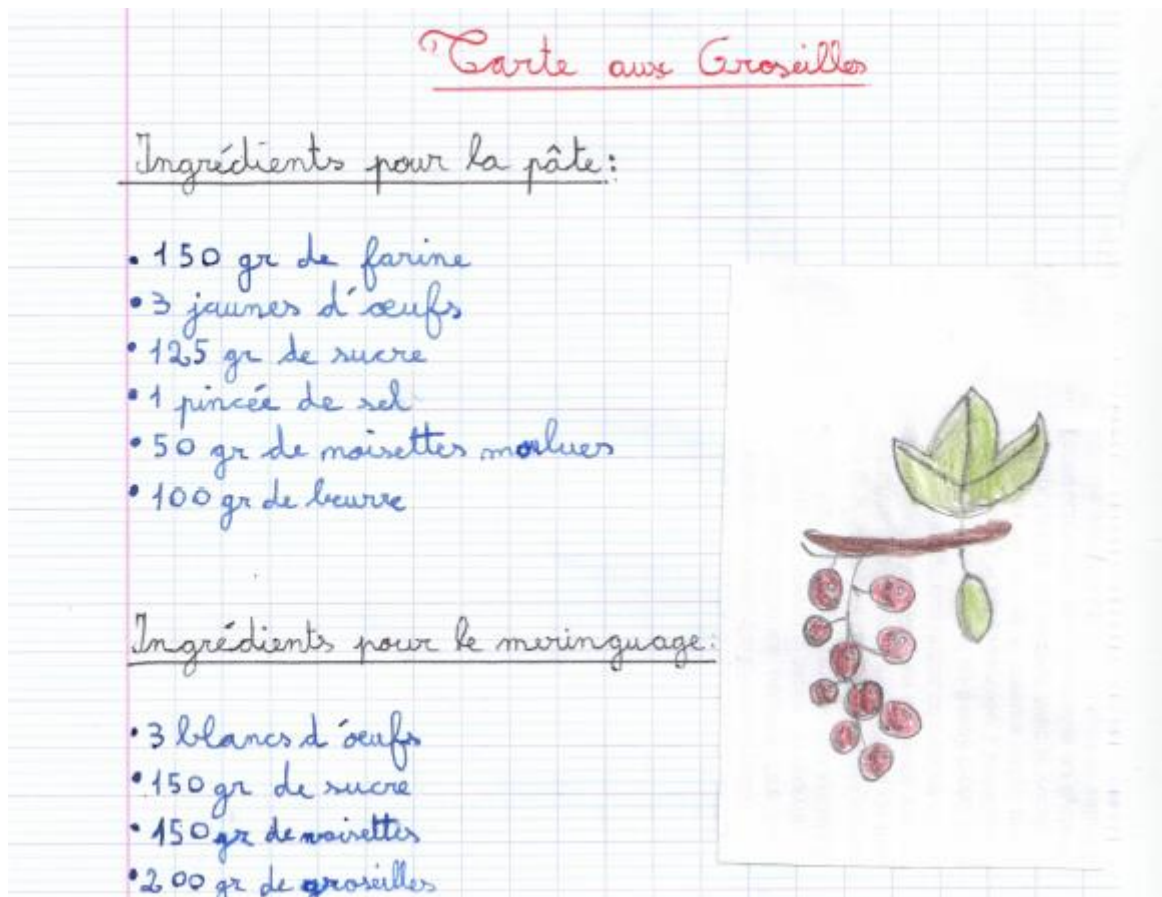 Tarte aux Groseilles
Ingrédients pour la pâte:
• 150 gr de farine
• 3 jaunes d'œufs
• 125 gr de sucre
• 1 pincée de sel
• 50 gr de noisettes moulues
• 100 gr de beurre
Ingrédients pour le meringuage:
• 3 blancs d'œufs
• 150 gr de sucre
• 150 gr de noisettes
• 200 gr de groseilles